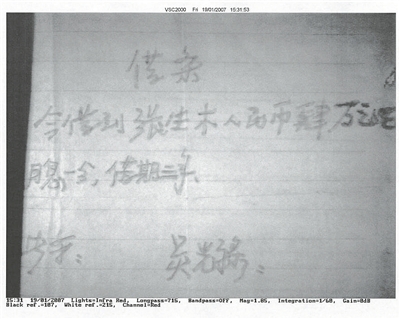 VSC2000 Fri 19/01/2007 15:31:53
借条
今借到张生木人民币肆万元正
月息一分，借期三年、
15:31 19/01/2007 Lights=Infra Red, Longpass=715, Bandpass=Off, Mag=1.85, Integration=1/60, Gain=0dB
Black ref.=107, White ref.=215, Channel=Red